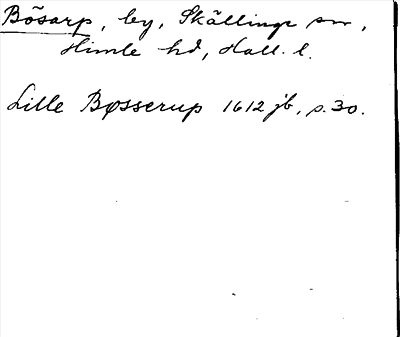 Bösarp, by, Skällinge sn,
Himle hd, Hall. l.
Lille Bøsserup 1612 jb, s. 30.